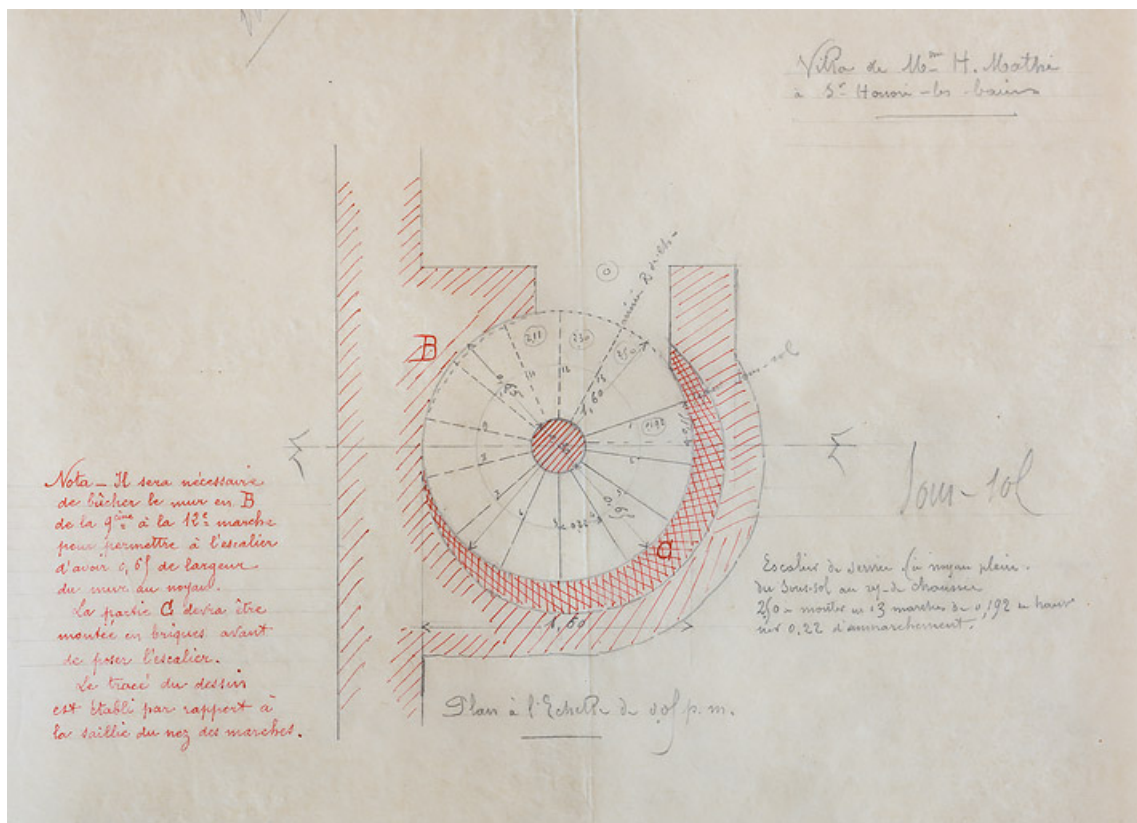 Villa de M^me H. Mathé
à S^t Honoré-les-bains
B
0
211
230
250
1,60
0,65
192
0,65
C
1,60
Sous-sol
Nota – Il sera nécessaire
de bûcher le mur en B
de la 9ème à la 12e marche
pour permettre à l'escalier
d'avoir 0,65 de largeur
du mur au noyau.
La partie C devra être
montée en briques avant
de poser l'escalier.
Le tracé du dessin
est établi par rapport à
la saillie du nez des marches.
Escalier de service (à noyau plein.
du sous-sol au rez-de chaussée
2,50 à monter en 13 marches de 0,192 de haut
sur 0,22 d'emmarchement.
Plan à l'Echelle de 0,05 p.m.